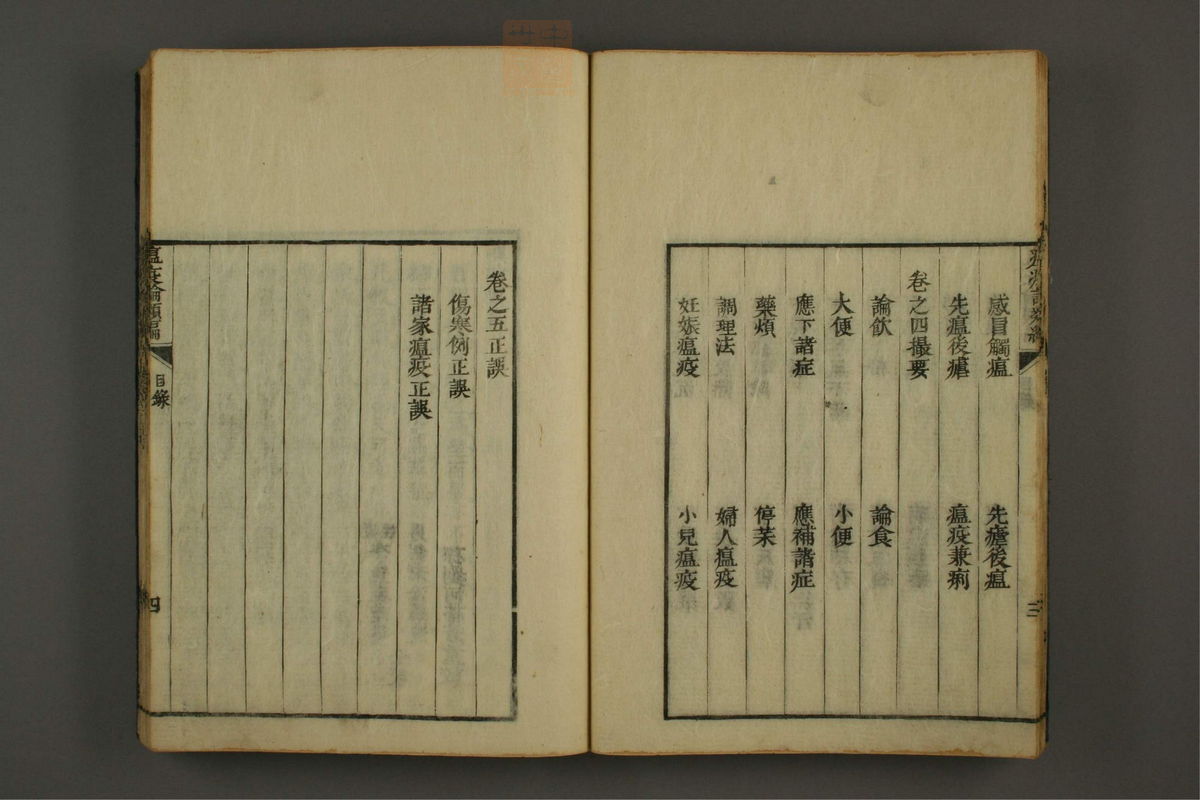 三
感冒觸瘟　先瘧後瘟
先瘟後瘧　瘟疫兼痢
卷之四撮要
論飲　論食
大便　小便
應下諸症　應補諸症
藥煩　停藥
調理法　婦人瘟疫
妊娠瘟疫　小兒瘟疫
卷之五正誤
傷寒例正誤
諸家瘟疫正誤
瘟疫論類編　目錄　四